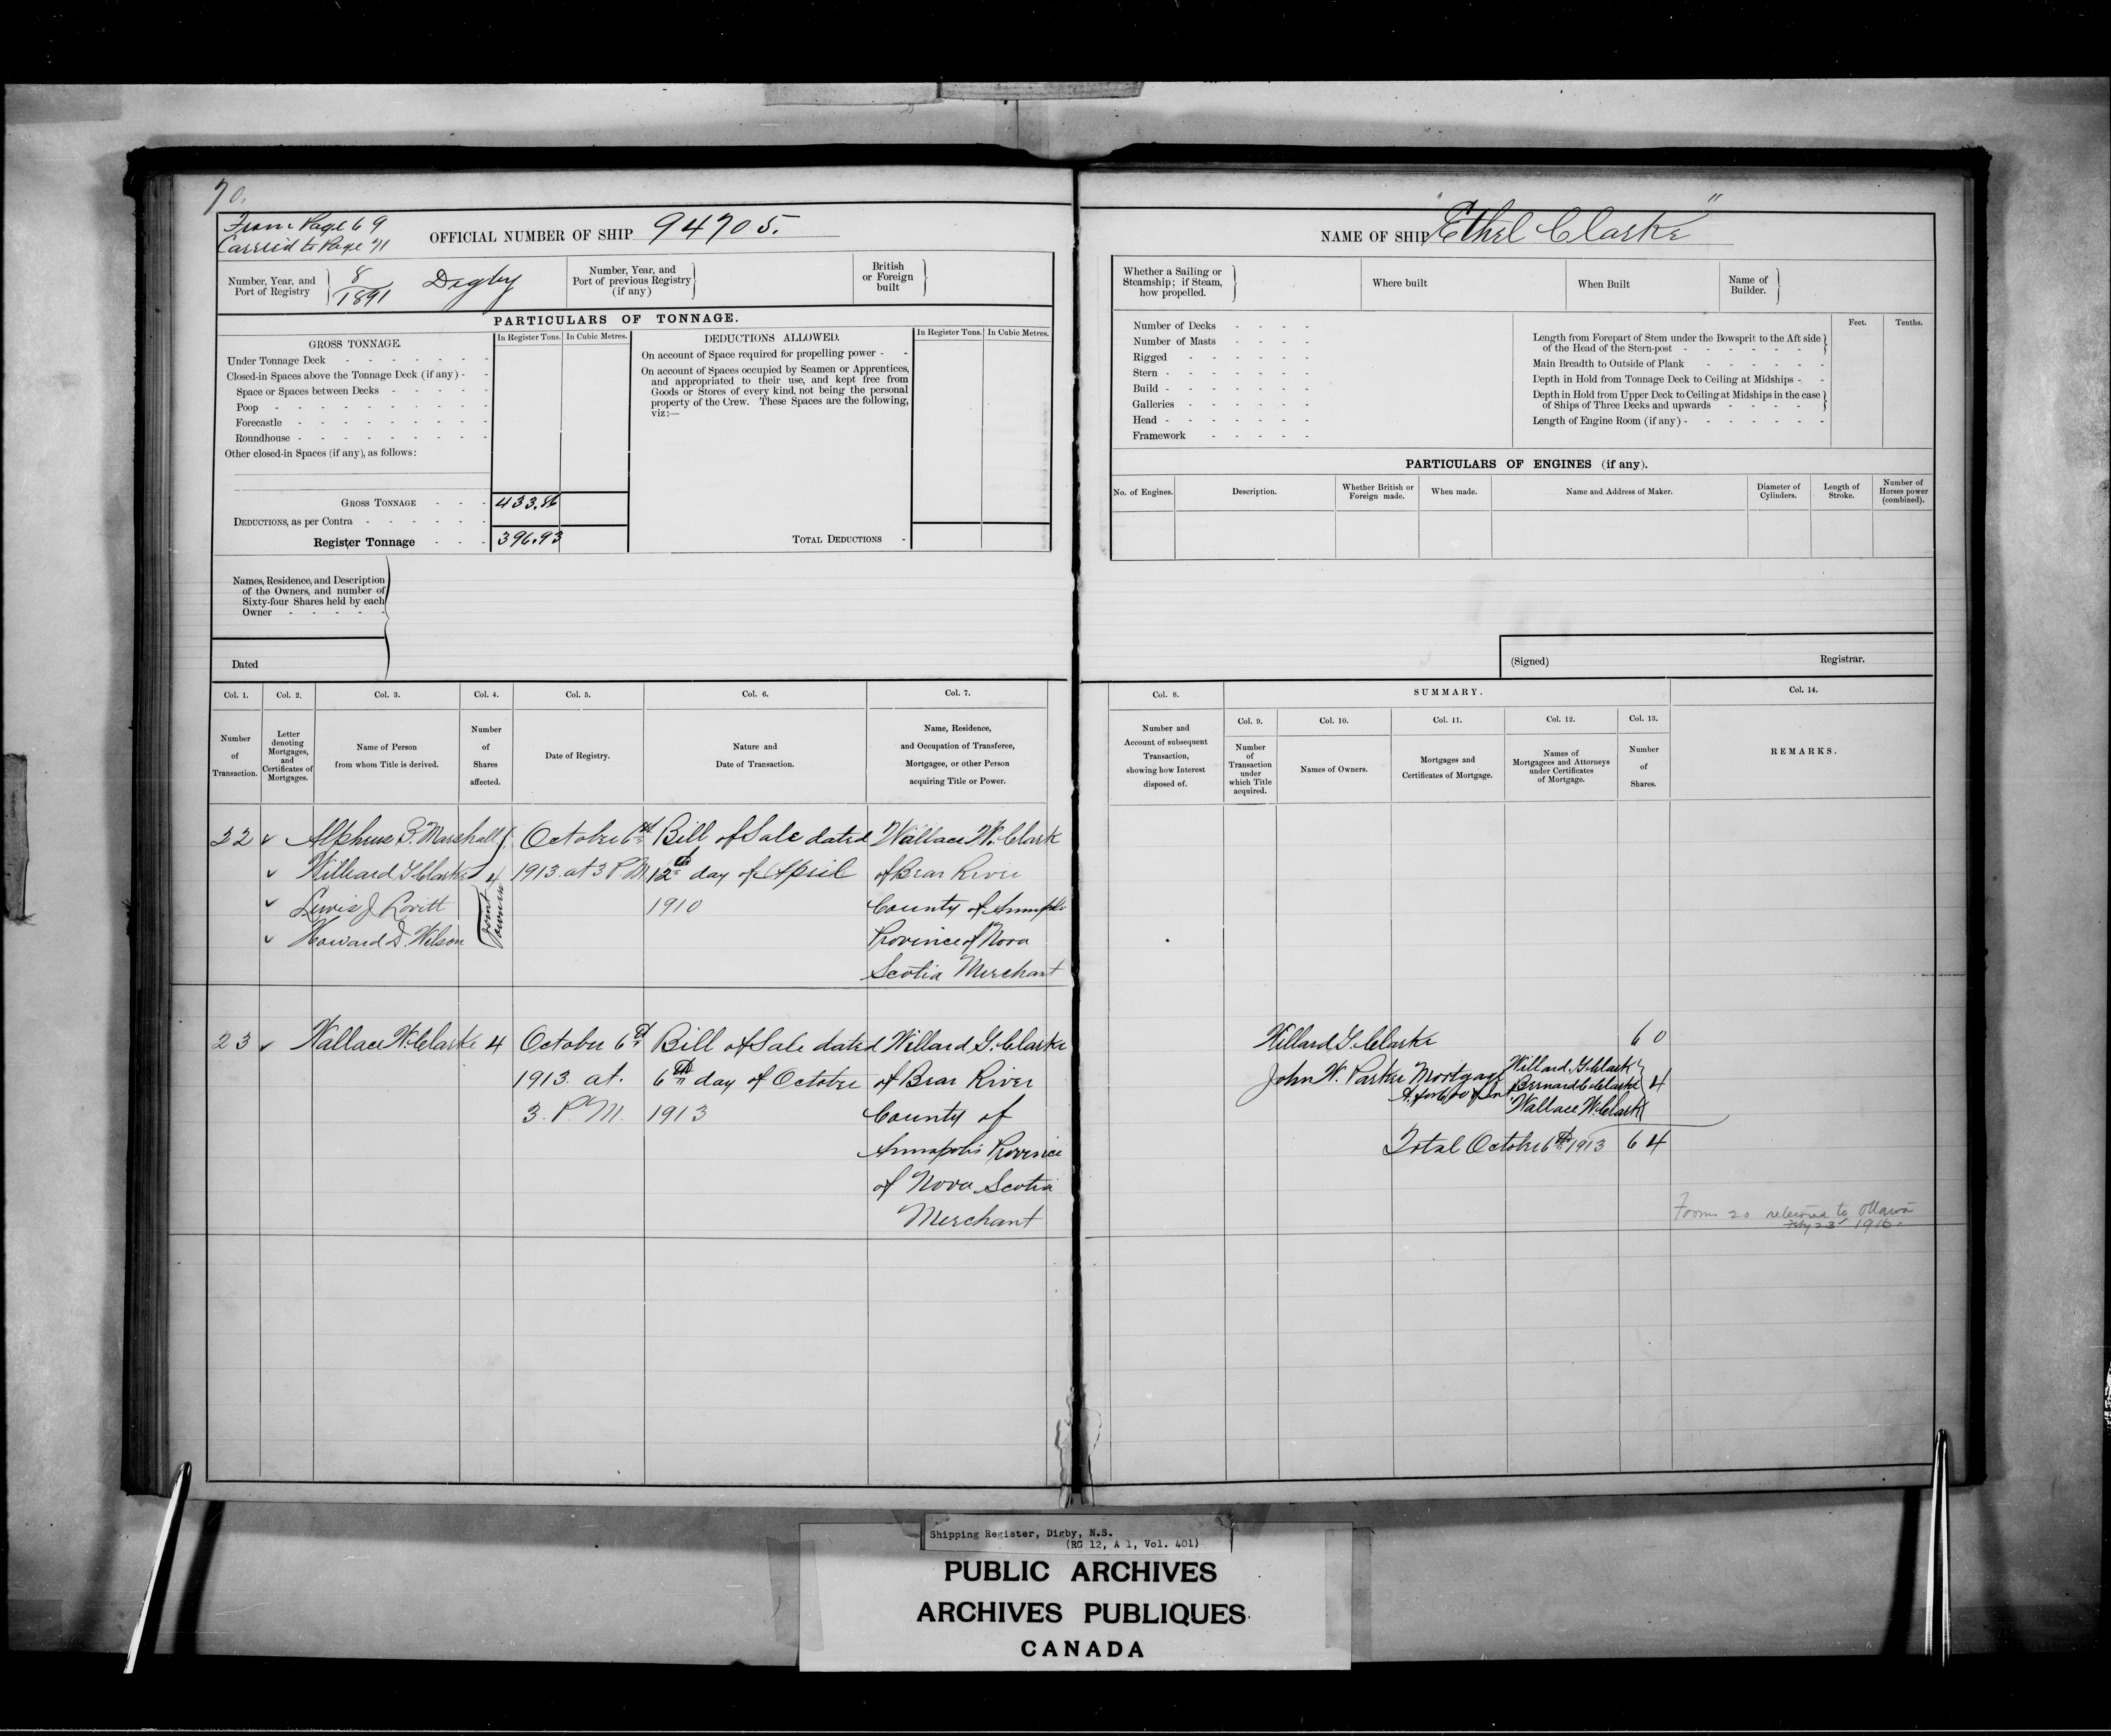 70.
From Page 69
Carried to Page 71
OFFICIAL NUMBER OF SHIP 94705.
Number, Year, and Port of Registry
8/1891 Digby
Number, Year, and Port of previous Registry (if any)
British or Foreign built
PARTICULARS OF TONNAGE.
GROSS TONNAGE.
In Register Tons. In Cubic Metres.
Under Tonnage Deck
Closed-in Spaces above the Tonnage Deck (if any)
Space or Spaces between Decks
Poop
Forecastle
Roundhouse
Other closed-in Spaces (if any), as follows:
GROSS TONNAGE 433.86
DEDUCTIONS, as per Contra
Register Tonnage 396.93
DEDUCTIONS ALLOWED.
In Register Tons. In Cubic Metres.
On account of Space required for propelling power
On account of Spaces occupied by Seamen or Apprentices,
and appropriated to their use, and kept free from
Goods or Stores of every kind, not being the personal
property of the Crew. These Spaces are the following,
viz:—
TOTAL DEDUCTIONS
Names, Residence, and Description
of the Owners, and number of
Sixty-four Shares held by each
Owner
Dated
Col. 1. Col. 2. Col. 3. Col. 4. Col. 5. Col. 6. Col. 7.
Number of Transaction.
Letter denoting Mortgages, and Certificates of Mortgages.
Name of Person from whom Title is derived.
Number of Shares affected.
Date of Registry.
Nature and Date of Transaction.
Name, Residence, and Occupation of Transferee, Mortgagee, or other Person acquiring Title or Power.
22 Alpheus B. Marshall October 6th Bill of Sale dated Wallace W. Clark
Willard G Clarke 4 1913 at 3 P.M. 12th day of April of Bear River
Lewis J Lovitt Joint Owners 1910 County of Annapolis
Howard D. Wilson Province of Nova
Scotia Merchant
23 Wallace W. Clarke 4 October 6th Bill of Sale dated Willard G. Clarke
1913. at. 6th day of October of Bear River
3. P.M. 1913 County of
Annapolis Province
of Nova Scotia
Merchant
NAME OF SHIP "Ethel Clarke"
Whether a Sailing or Steamship; if Steam, how propelled.
Where built
When Built
Name of Builder.
Number of Decks
Number of Masts
Rigged
Stern
Build
Galleries
Head
Framework
Feet. Tenths.
Length from Forepart of Stem under the Bowsprit to the Aft side
of the Head of the Stern-post
Main Breadth to Outside of Plank
Depth in Hold from Tonnage Deck to Ceiling at Midships
Depth in Hold from Upper Deck to Ceiling at Midships in the case
of Ships of Three Decks and upwards
Length of Engine Room (if any)
PARTICULARS OF ENGINES (if any).
No. of Engines.
Description.
Whether British or Foreign made.
When made.
Name and Address of Maker.
Diameter of Cylinders.
Length of Stroke.
Number of Horses power (combined).
(Signed) Registrar.
Col. 8. SUMMARY. Col. 14.
Col. 9. Col. 10. Col. 11. Col. 12. Col. 13.
Number and Account of subsequent Transaction, showing how Interest disposed of.
Number of Transaction under which Title acquired.
Names of Owners.
Mortgages and Certificates of Mortgage.
Names of Mortgagees and Attorneys under Certificates of Mortgage.
Number of Shares.
REMARKS.
Willard G. Clarke 60
John W. Parker Mortgage Willard G Clark
Bernard C Clarke 4
Wallace W. Clark
Total October 6th 1913 64
Form 20 returned to Ottawa
23 1916
Shipping Register, Digby, N.S.
(RG 12, A 1, Vol. 401)
PUBLIC ARCHIVES
ARCHIVES PUBLIQUES
CANADA